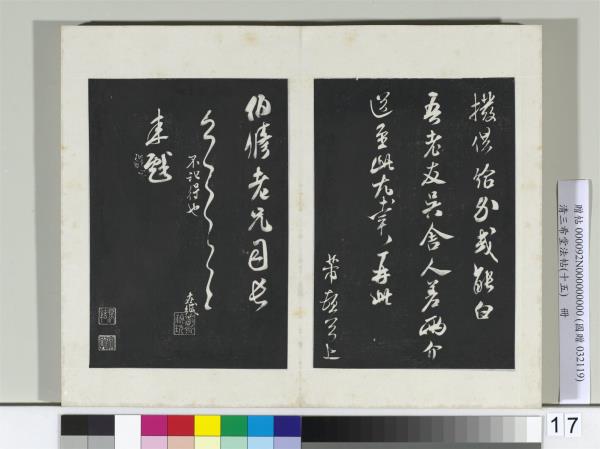 撥借給
或能白
吾老友吳舍人差兩介
送至此尤幸再此
芾頓首上
伯脩老兄司長
不記得也
來戲
贈帖 000092N000000000 (國贈 032119)
清三希堂法帖(十五) 冊
17